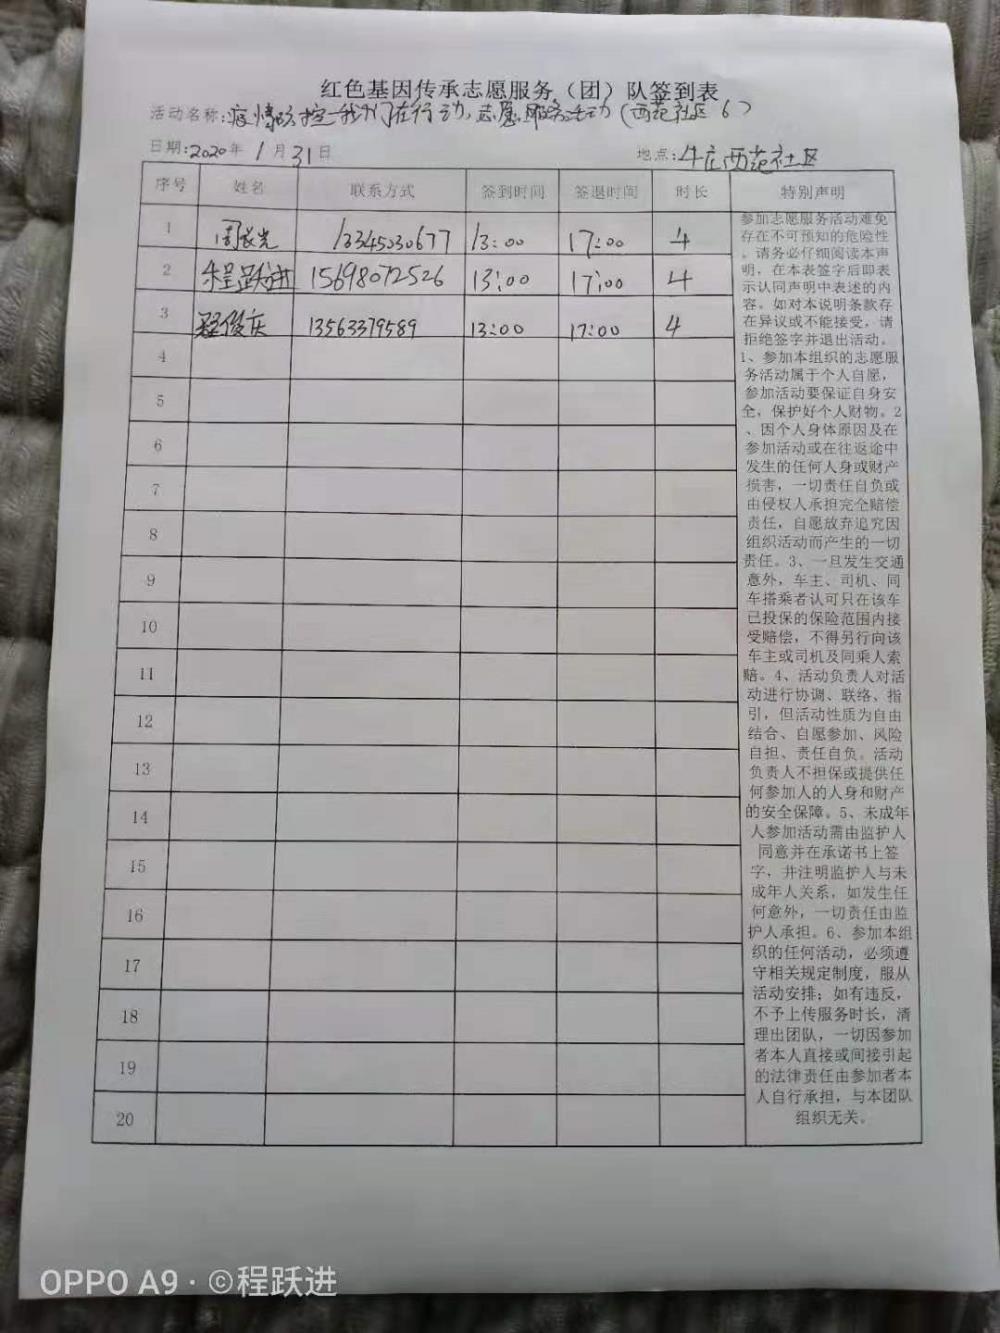 红色基因传承志愿服务（团）队签到表
活动名称:疫情防控-我们在行动,志愿服务活动(西范社区6)
日期:2020年1月31日 地点:牛庄西范社区
序号 姓名 联系方式 签到时间 签退时间 时长 特别声明
1 周长光 13345030677 13:00 17:00 4
2 程跃进 15698072526 13:00 17:00 4
3 程俊庆 13563379589 13:00 17:00 4
4
5
6
7
8
9
10
11
12
13
14
15
16
17
18
19
20
参加志愿服务活动难免
存在不可预知的危险性
。请务必仔细阅读本声
明，在本表签字后即表
示认同声明中表述的内
容。如对本说明条款存
在异议或不能接受，请
拒绝签字并退出活动。
1、参加本组织的志愿服
务活动属于个人自愿，
参加活动要保证自身安
全，保护好个人财物。2
、因个人身体原因及在
参加活动或在往返途中
发生的任何人身或财产
损害，一切责任自负或
由侵权人承担完全赔偿
责任，自愿放弃追究因
组织活动而产生的一切
责任。3、一旦发生交通
意外，车主、司机、同
车搭乘者认可只在该车
已投保的保险范围内接
受赔偿，不得另行向该
车主或司机及同乘人索
赔。4、活动负责人对活
动进行协调、联络、指
引，但活动性质为自由
结合、自愿参加、风险
自担、责任自负。活动
负责人不担保或提供任
何参加人的人身和财产
的安全保障。5、未成年
人参加活动需由监护人
同意并在承诺书上签
字，并注明监护人与未
成年人关系，如发生任
何意外，一切责任由监
护人承担。6、参加本组
织的任何活动，必须遵
守相关规定制度，服从
活动安排；如有违反，
不予上传服务时长，清
理出团队，一切因参加
者本人直接或间接引起
的法律责任由参加者本
人自行承担，与本团队
组织无关。
OPPO A9 · ©程跃进